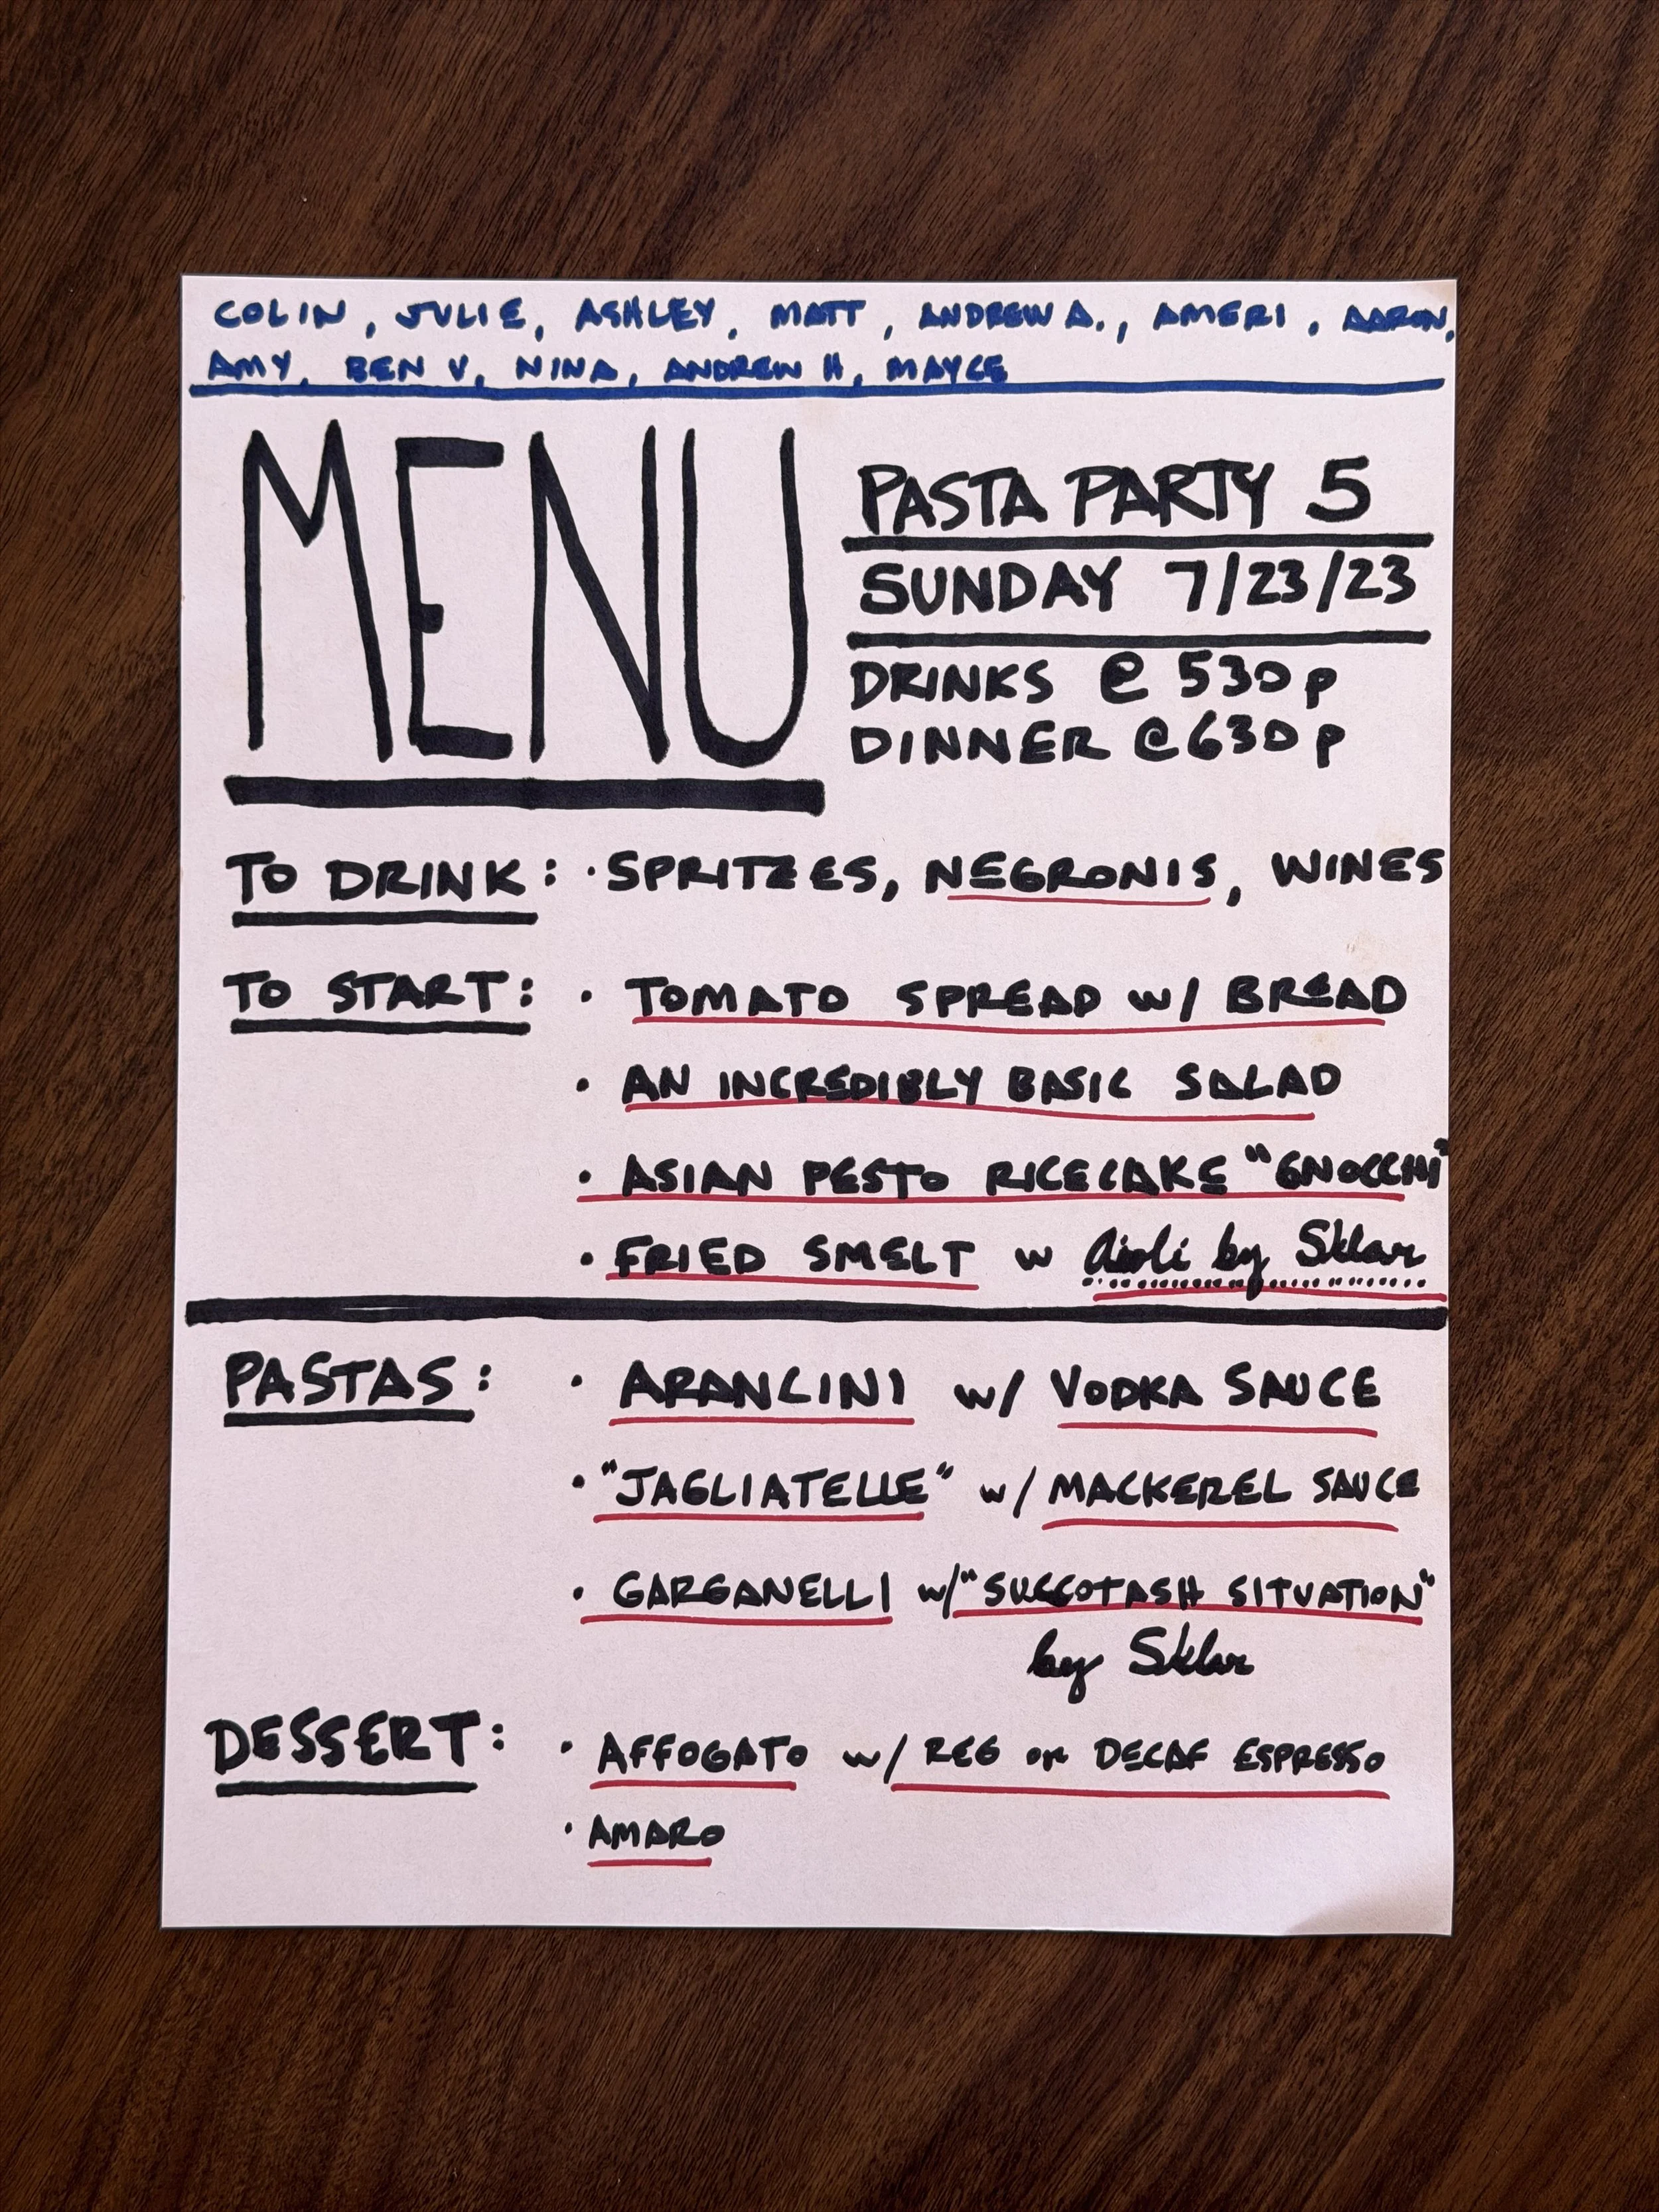 COLIN, JULIE, ASHLEY, MATT, ANDREW A., AMERI, AARON,
AMY, BEN V, NINA, ANDREW H, MAYCE
MENU
PASTA PARTY 5
SUNDAY 7/23/23
DRINKS @ 530p
DINNER @ 630p
TO DRINK: · SPRITZES, NEGRONIS, WINES
TO START: · TOMATO SPREAD w/ BREAD
· AN INCREDIBLY BASIC SALAD
· ASIAN PESTO RICECAKE "GNOCCHI"
· FRIED SMELT w aioli by Sklar
PASTAS: · ARANCINI w/ VODKA SAUCE
· "JAGLIATELLE" w/ MACKEREL SAUCE
· GARGANELLI w/ "SUCCOTASH SITUATION"
by Sklar
DESSERT: · AFFOGATO w/ REG or DECAF ESPRESSO
· AMARO